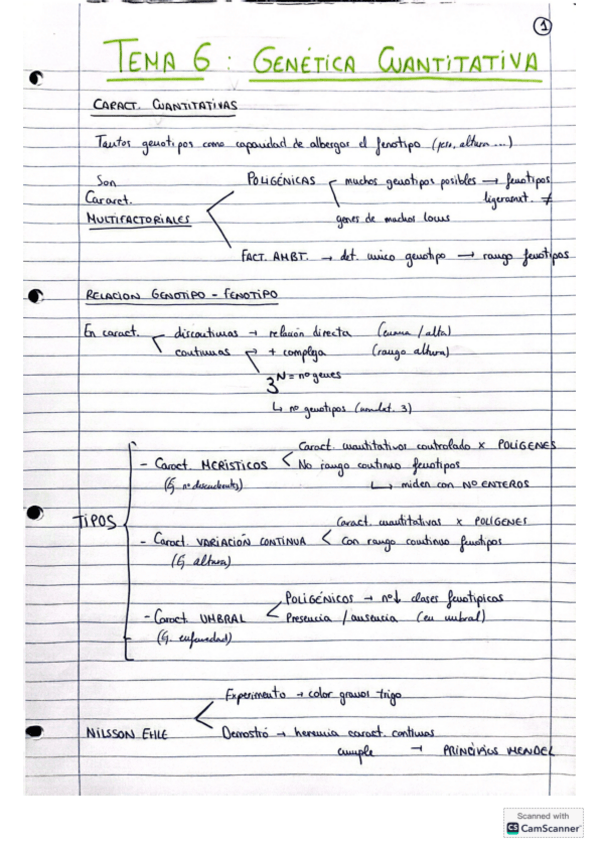 1
TEMA 6 : GENÉTICA CUANTITATIVA
CARACT. CUANTITATIVAS
Tantos genotipos como capacidad de albergar el fenotipo (peso, altura ...)
Son
Caract.
MULTIFACTORIALES
POLIGÉNICAS
muchos genotipos posibles → fenotipos
ligeramt. ≠
genes de muchos locus
FACT. AMBT. → det. unico genotipo → rango fenotipos
RELACION GENOTIPO - FENOTIPO
En caract.
discontinuas → relación directa (enana / alta)
continuas → + compleja (rango altura)
3^N = nº genes
↳ nº genotipos
TIPOS
- Caract. MERÍSTICOS
(Ej nº descendientes)
Caract. cuantitativos controlado x POLIGENES
No rango continuo fenotipos
↳ miden con NO ENTEROS
- Caract. VARIACIÓN CONTINUA
(Ej altura)
Caract. cuantitativas x POLÍGENES
Con rango continuo fenotipos
- Caract. UMBRAL
(Ej. enfermedad)
POLIGÉNICOS → nº↓ clases fenotípicas
Presencia / ausencia (en umbral)
NILSSON EHLE
Experimento → color granos trigo
Demostró → herencia caract. continuas
cumple → PRINCIPIOS MENDEL
Scanned with
CS CamScanner